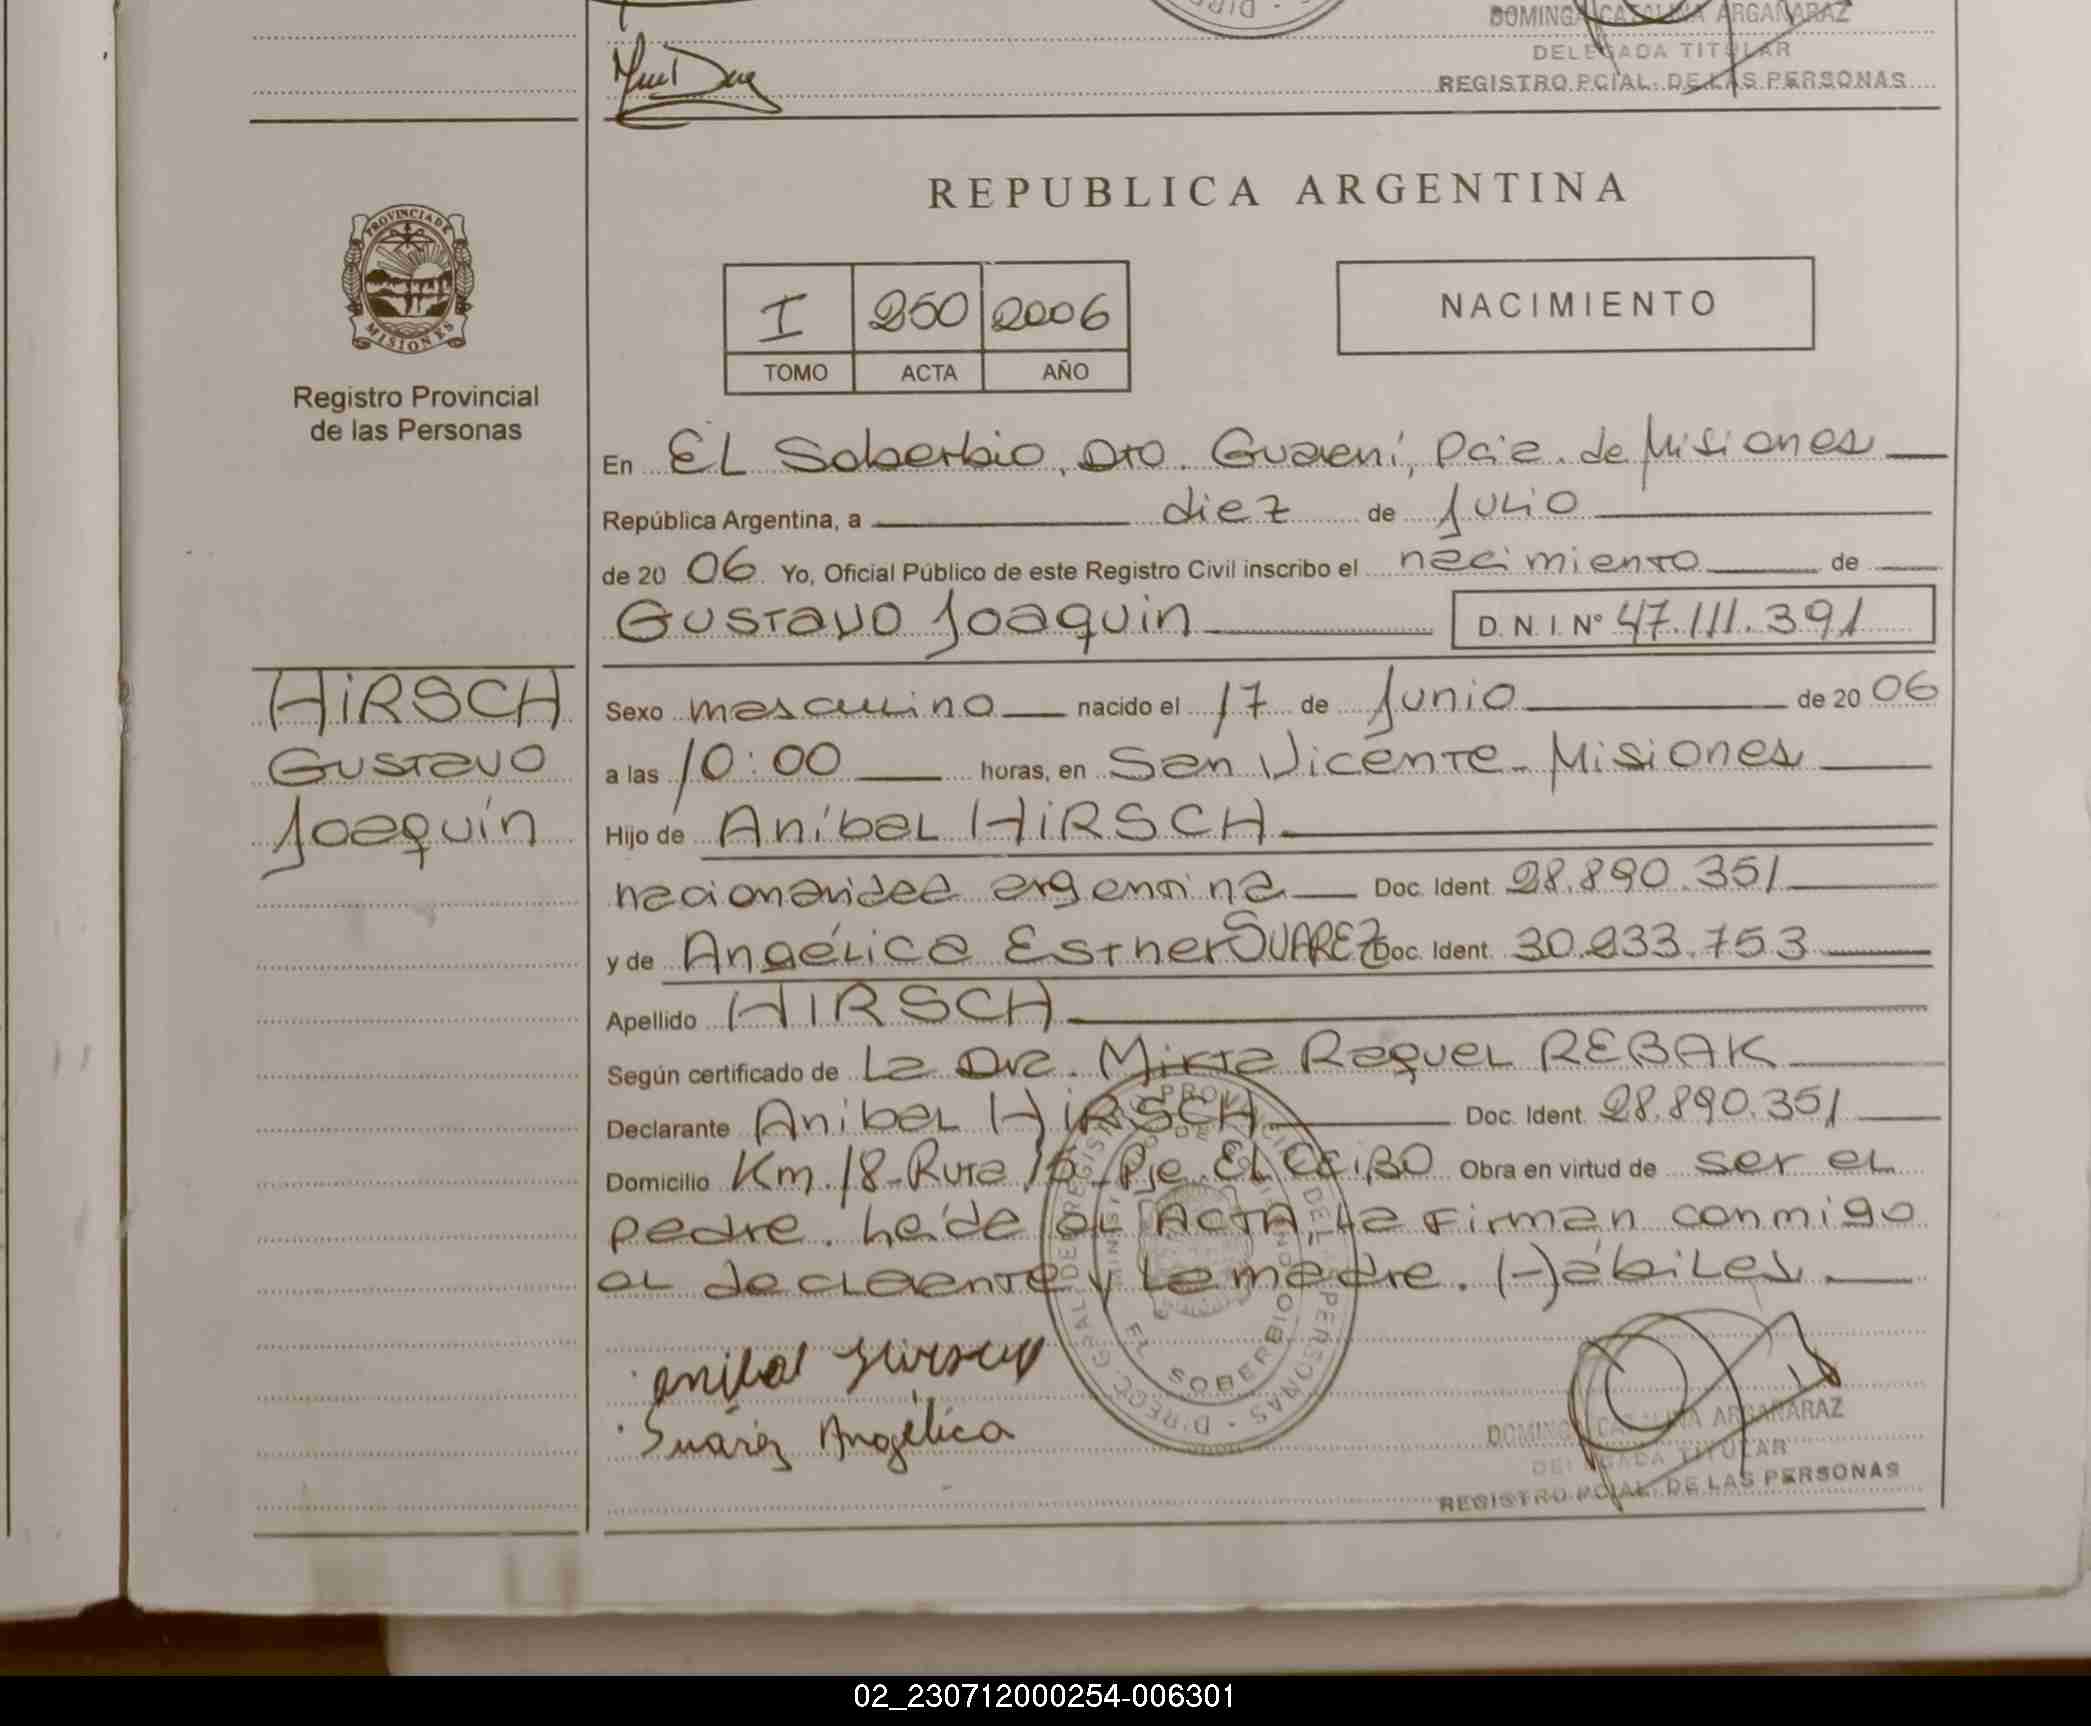 DOMINGA CATALINA ARGAÑARAZ
DELEGADA TITULAR
REGISTRO PCIAL. DE LAS PERSONAS
PROVINCIA DE MISIONES
Registro Provincial
de las Personas
HIRSCH
Gustavo
Joaquín
REPUBLICA ARGENTINA
I 250 2006
TOMO ACTA AÑO
NACIMIENTO
En El Soberbio, Dto. Guaraní, Pcia. de Misiones
República Argentina, a diez de Julio
de 2006 Yo, Oficial Público de este Registro Civil inscribo el nacimiento de
Gustavo Joaquin D.N.I. N° 47.111.391
Sexo masculino nacido el 17 de Junio de 2006
a las 10:00 horas, en San Vicente - Misiones
Hijo de Aníbal HIRSCH
nacionalidad argentina Doc. Ident. 28.890.351
y de Angélica Esther SUAREZ Doc. Ident. 30.233.753
Apellido HIRSCH
Según certificado de La Dra. Mirta Raquel REBAK
Declarante Anibal HIRSCH Doc. Ident. 28.890.351
Domicilio Km. 18 - Ruta 15 - Pje. El CEIBO Obra en virtud de ser el
padre. Leída el ACTA, la firman conmigo
el declarante y la madre. Hábiles
anibal Hirsch
Suárez Angélica
EL SOBERBIO
DOMINGA CATALINA ARGAÑARAZ
DELEGADA TITULAR
REGISTRO PCIAL. DE LAS PERSONAS
02_230712000254-006301